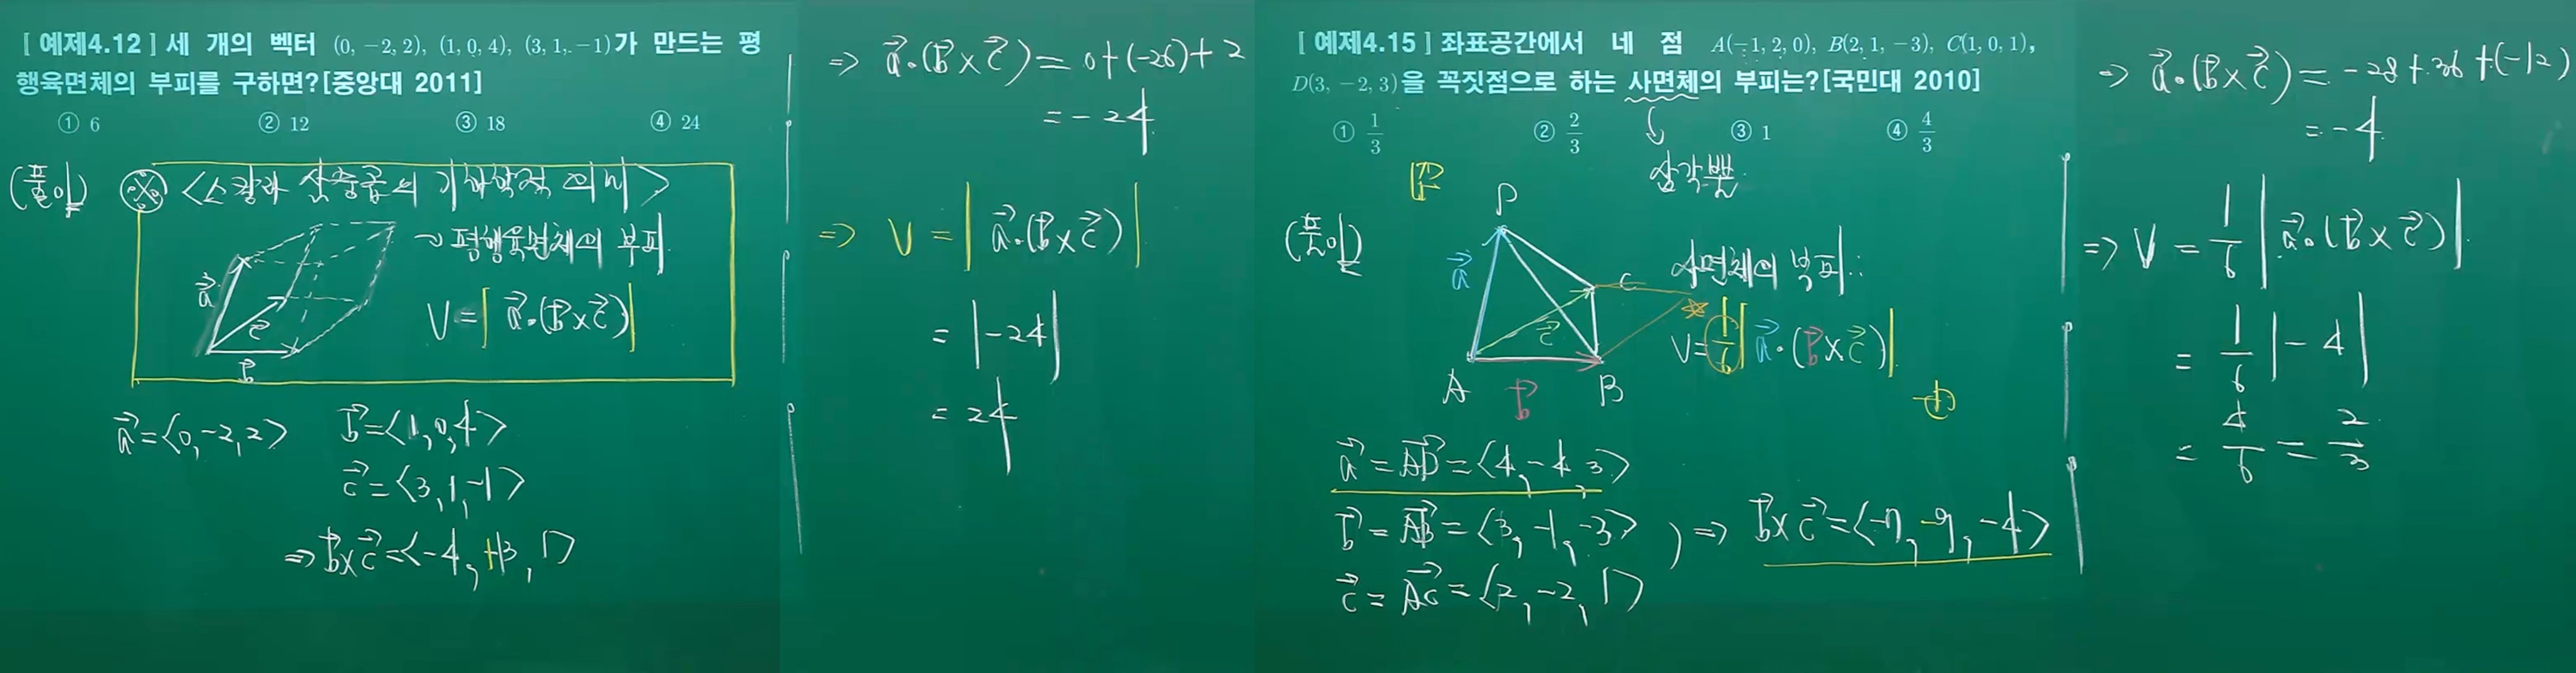 [ 예제4.12 ] 세 개의 벡터 (0, −2, 2), (1, 0, 4), (3, 1, −1)가 만드는 평
행육면체의 부피를 구하면?[중앙대 2011]
① 6 ② 12 ③ 18 ④ 24
(풀이) ※ <스칼라 삼중곱의 기하학적 의미>
→ 평행육면체의 부피
V = | a⃗·(b⃗×c⃗) |
a⃗
c⃗
b⃗
a⃗ = <0, −2, 2> b⃗ = <1, 0, 4>
c⃗ = <3, 1, −1>
⇒ b⃗×c⃗ = <−4, +13, 1>
⇒ a⃗·(b⃗×c⃗) = 0+(−26)+2
= −24
⇒ V = | a⃗·(b⃗×c⃗) |
= |−24|
= 24
[ 예제4.15 ] 좌표공간에서 네 점 A(−1, 2, 0), B(2, 1, −3), C(1, 0, 1),
D(3, −2, 3)을 꼭짓점으로 하는 사면체의 부피는?[국민대 2010]
① 1/3 ② 2/3 ③ 1 ④ 4/3
삼각뿔
(풀이)
D
a⃗
C
c⃗
A b⃗ B
사면체의 부피:
V = 1/6 | a⃗·(b⃗×c⃗) |
a⃗ = AD⃗ = <4, −4, 3>
b⃗ = AB⃗ = <3, −1, −3>
c⃗ = AC⃗ = <2, −2, 1>
) ⇒ b⃗×c⃗ = <−7, −9, −4>
⇒ a⃗·(b⃗×c⃗) = −28+36+(−12)
= −4
⇒ V = 1/6 | a⃗·(b⃗×c⃗) |
= 1/6 |−4|
= 4/6 = 2/3